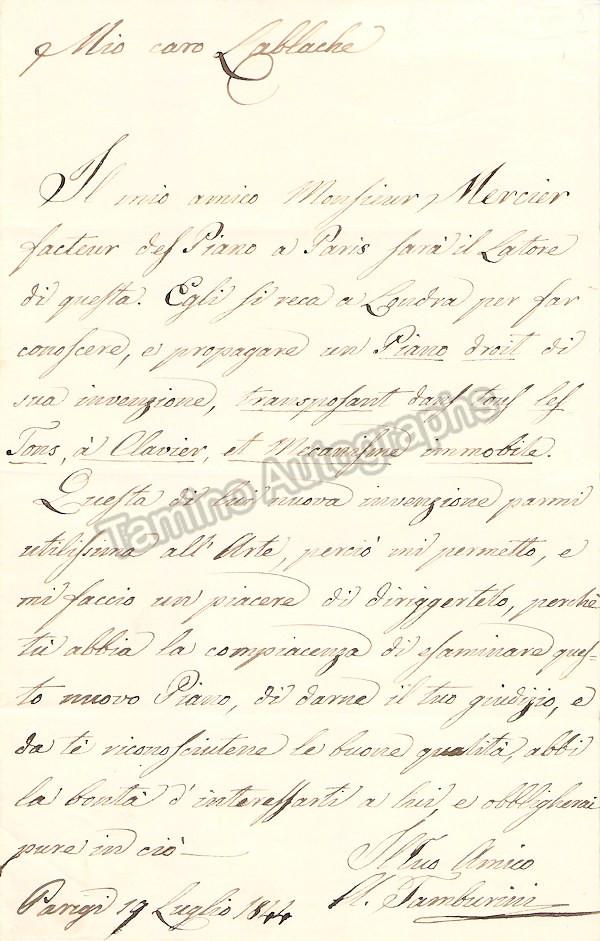 Mio caro Lablache
Il mio amico Monsieur Mercier
facteur des Piano a Paris sarà il Latore
di questa. Egli si reca a Londra per far
conoscere, e propagare un Piano droit di
sua invenzione, transposant dans tous les
Tons, à Clavier, et Mecanisme immobile.
Questa di lui nuova invenzione parmi
utilissima all' Arte, perciò mi permetto, e
mi faccio un piacere di diriggertelo, perchè
tu abbia la compiacenza di esaminare ques-
to nuovo Piano, di darne il tuo giudizio, e
da te riconosciutene le buone qualità, abbi
la bontà d'interessarti a lui, e obbligherai
pure in ciò —
Il Tuo Amico
A. Tamburini
Parigi 19 Luglio 1844
Tamino Autographs